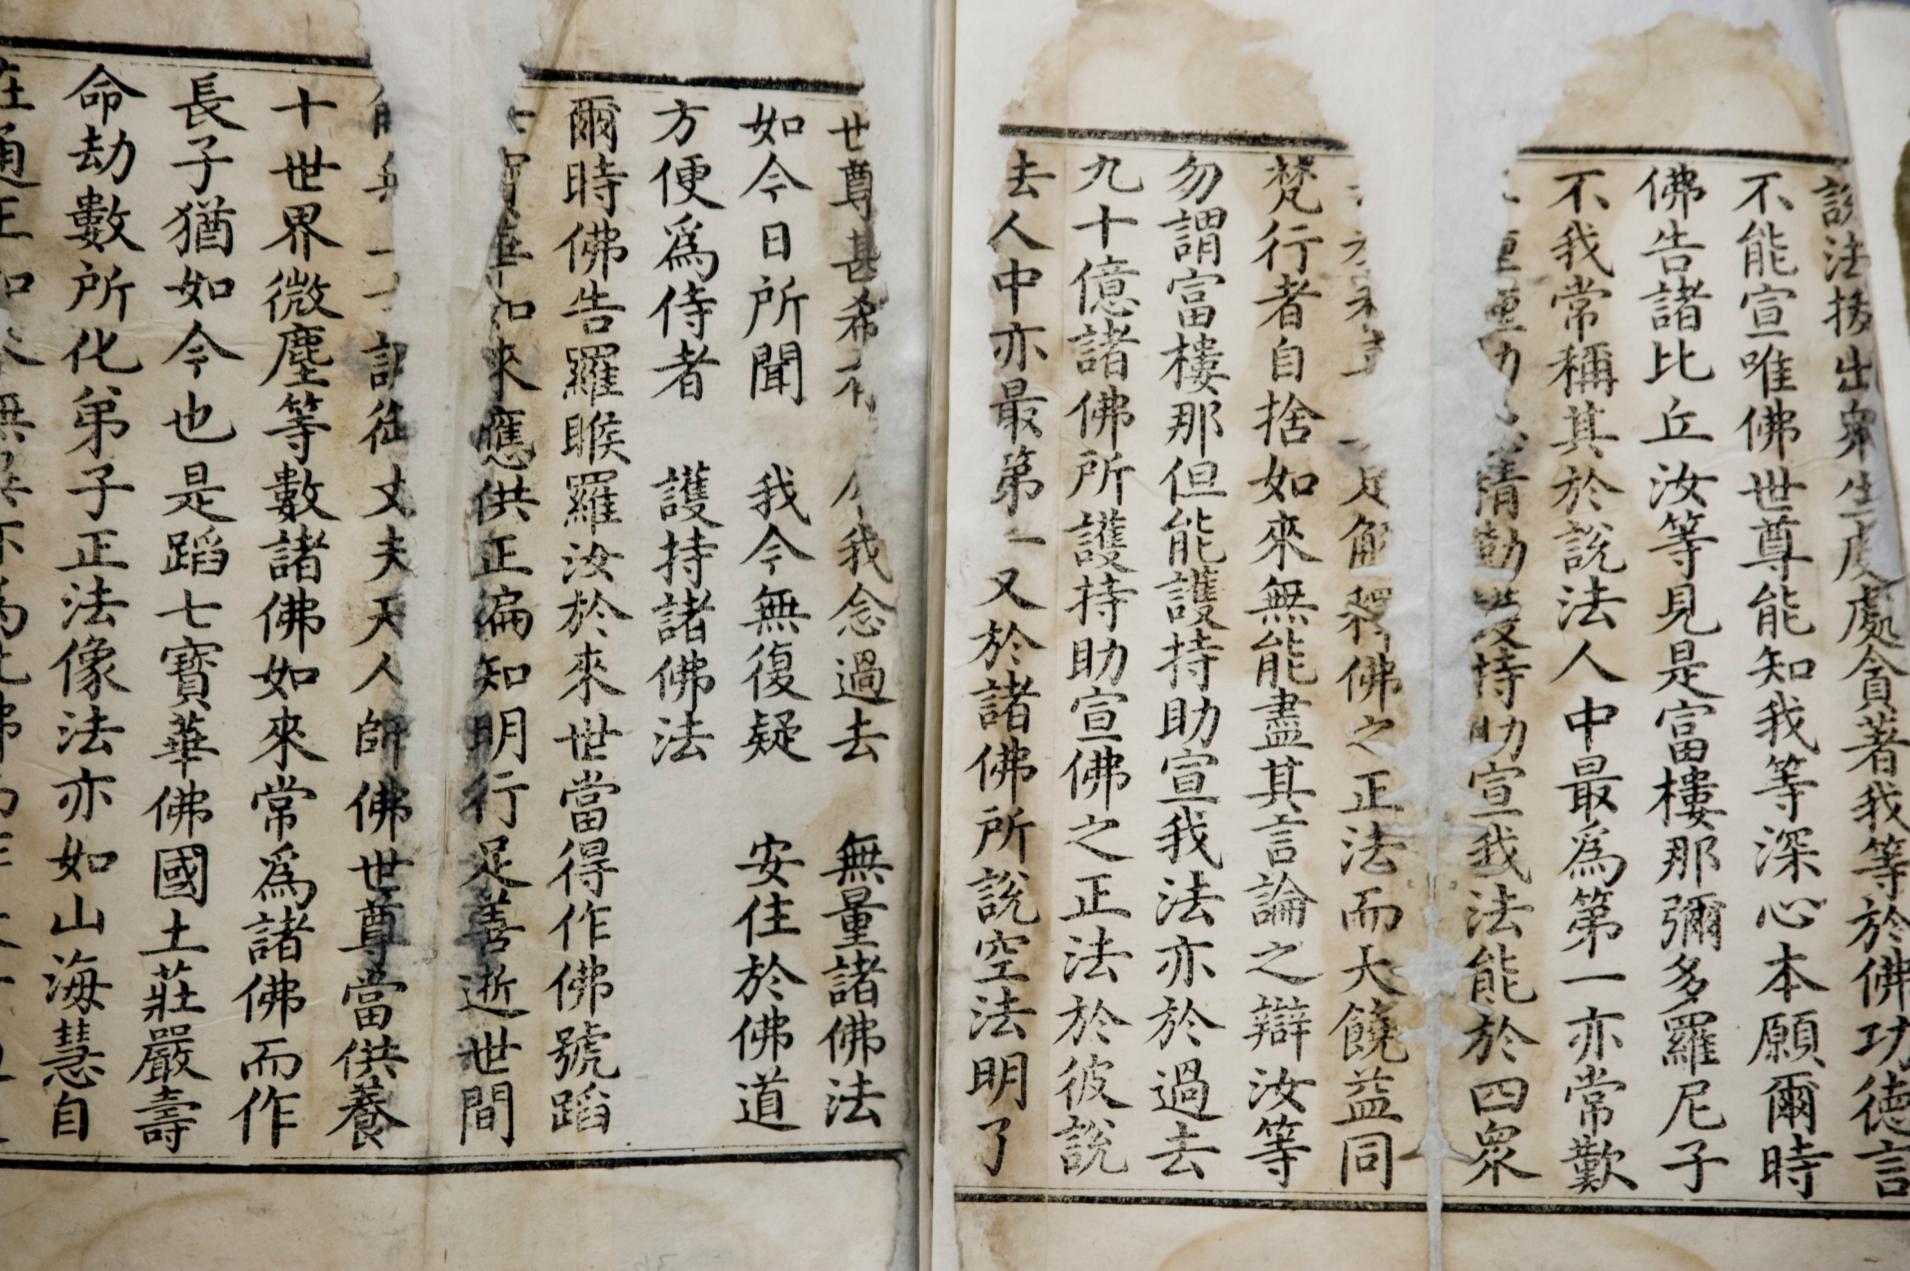 說法拔出眾生處處貪著我等於佛功德言
不能宣唯佛世尊能知我等深心本願爾時
佛告諸比丘汝等見是富樓那彌多羅尼子
不我常稱其於說法人中最為第一亦常歎
精勤護持助宣我法能於四眾
解釋佛之正法而大饒益同
梵行者自捨如來無能盡其言論之辯汝等
勿謂富樓那但能護持助宣我法亦於過去
九十億諸佛所護持助宣佛之正法於彼說
法人中亦最第一又於諸佛所說空法明了
世尊甚希有 令我念過去 無量諸佛法
如今日所聞 我今無復疑 安住於佛道
方便爲侍者 護持諸佛法
爾時佛告羅睺羅汝於來世當得作佛號蹈
七寶華如來應供正徧知明行足善逝世間
調御丈夫天人師佛世尊當供養
十世界微塵等數諸佛如來常爲諸佛而作
長子猶如今也是蹈七寶華佛國土莊嚴壽
命劫數所化弟子正法像法亦如山海慧自
在通王如來無異